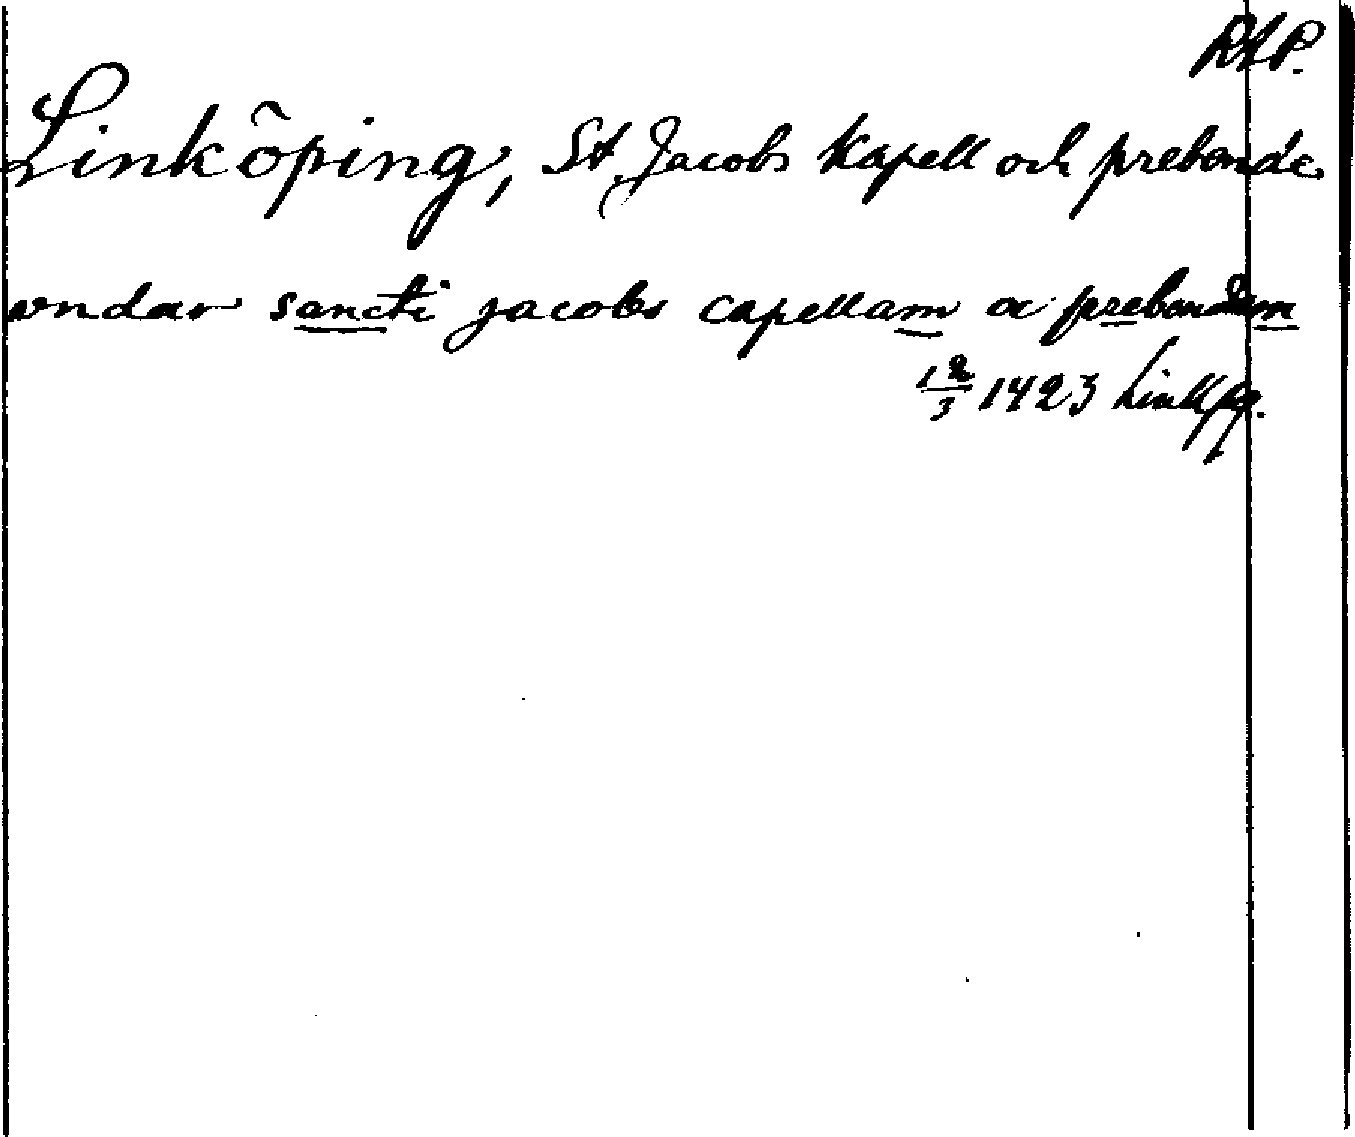 RAP.
Linköping, St. Jacobs kapell och prebende
vndar sancti jacobs capellam oc prebendam
12/3 1423 Linkpg.